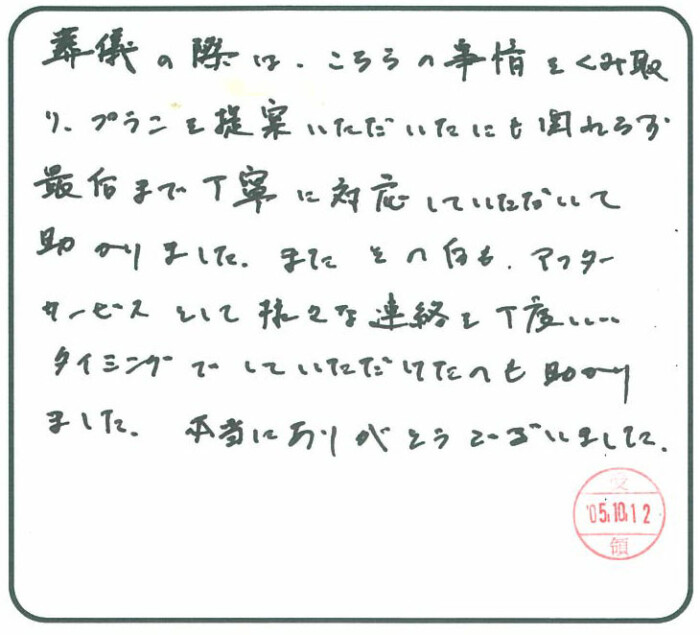 葬儀の際は、こちらの事情をくみ取
り、プランを提案いただいたにも関わらず
最后まで丁寧に対応していただいて
助かりました。またその后も、アフター
サービスとして様々な連絡を丁度いい
タイミングでしていただけたのも助かり
ました。本当にありがとうございました。
受
'05.10.12
領